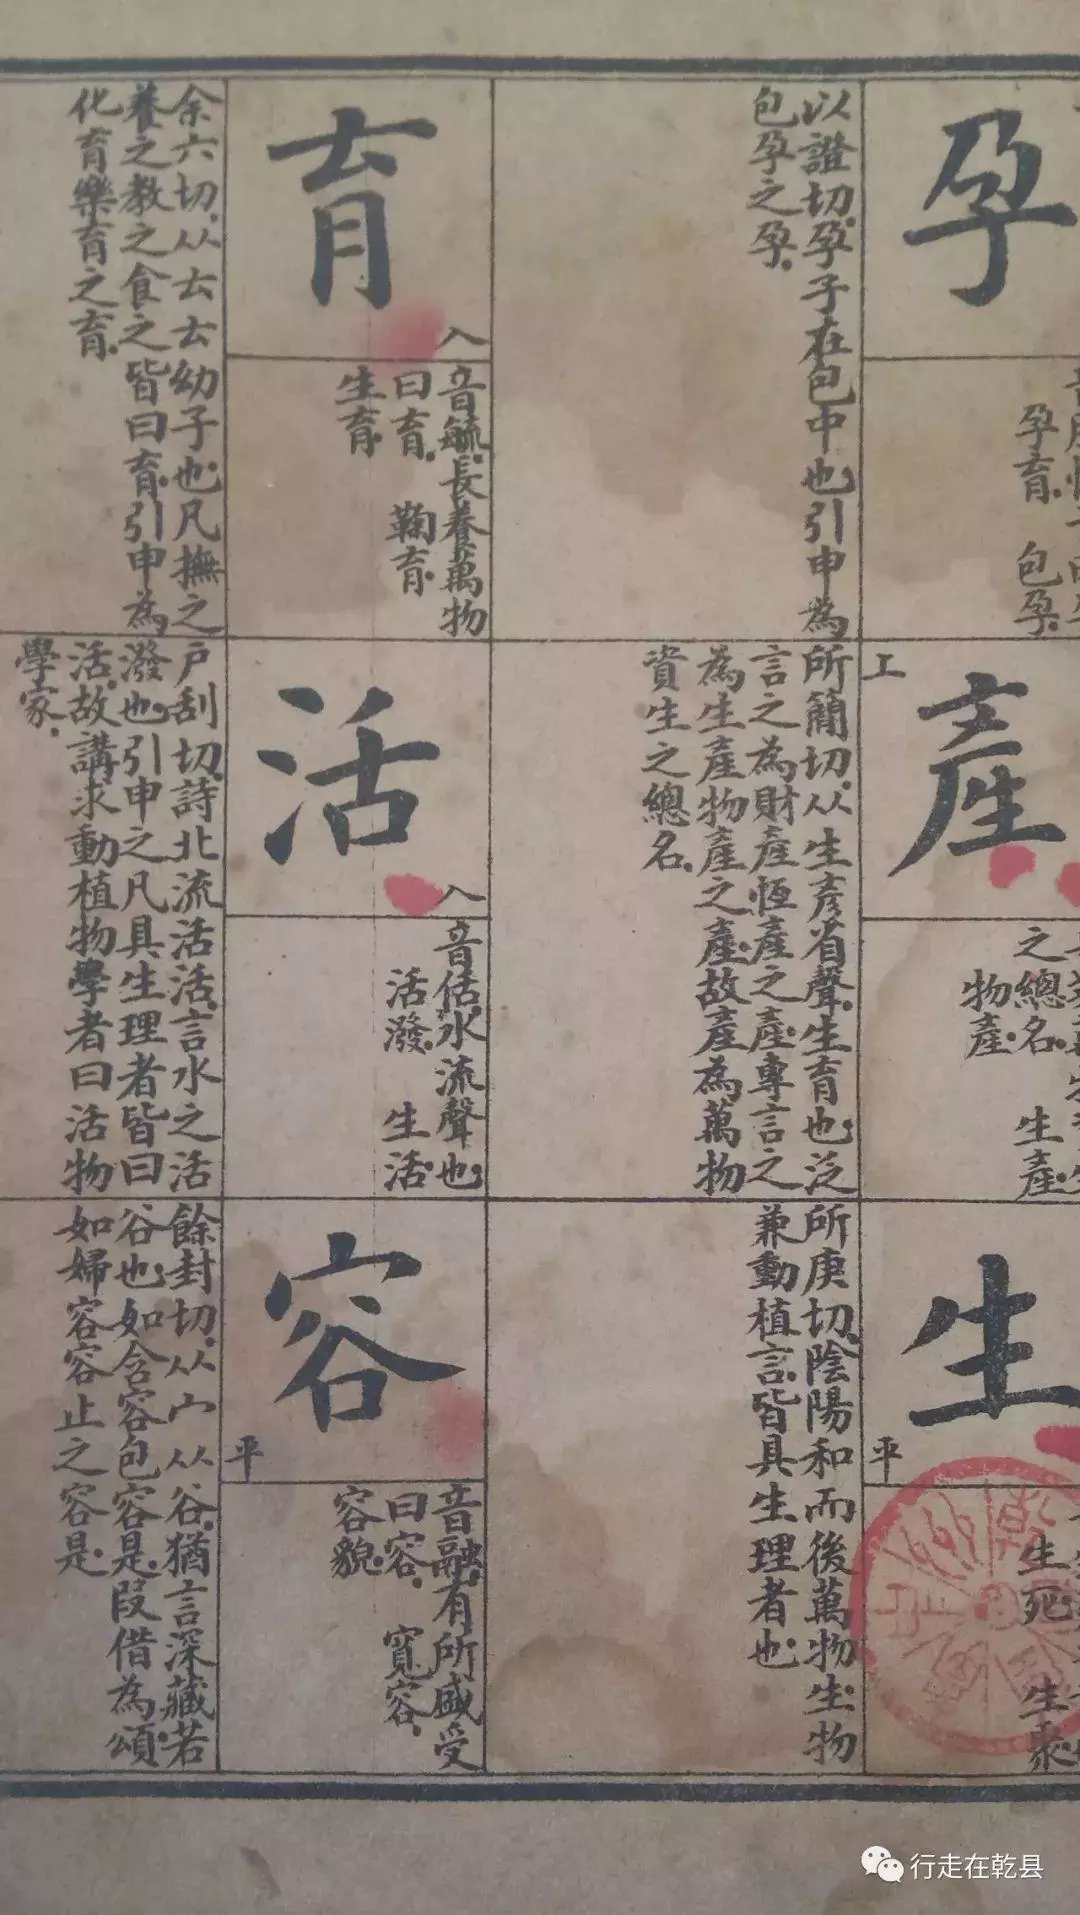 孕
孕育　包孕
以證切孕子在包中也引申為
包孕之孕
上
產
之總名　生產
物產
所簡切从生彦省聲生育也泛
言之為財產恆產之產專言之
為生產物產之產故產為萬物
資生之總名
生
平
生死　生衆
所庚切陰陽和而後萬物生物
兼動植言皆具生理者也
育
入
音毓長養萬物
曰育　鞠育
生育
余六切从𠫓𠫓幼子也凡撫之
養之教之食之皆曰育引申為
化育樂育之育
活
入
音佸水流聲也
活潑　生活
户刮切詩北流活活言水之活
潑也引申之凡具生理者皆曰
活故講求動植物學者曰活物
學家
容
平
音融有所盛受
曰容　寬容
容貌
餘封切从宀从谷猶言深藏若
谷也如含容包容是叚借為頌
如婦容容止之容是
行走在乾县